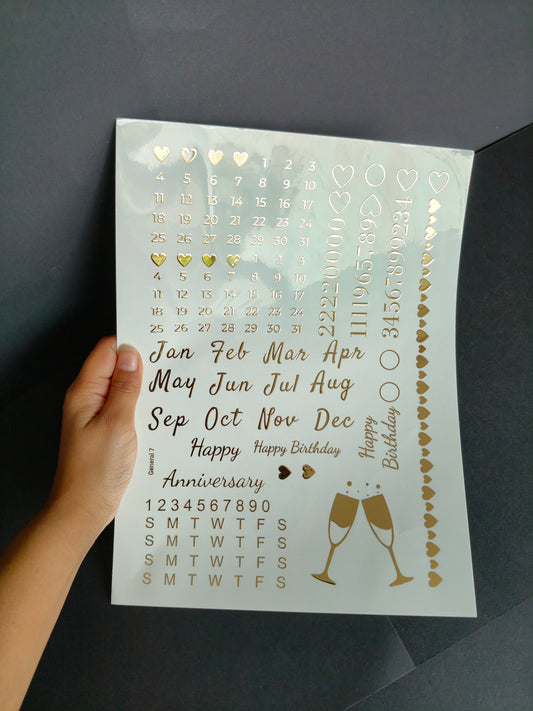 1 2 3
4 5 6 7 8 9 10
11 12 13 14 15 16 17
18 19 20 21 22 23 24
25 26 27 28 29 30 31
1 2 3
4 5 6 7 8 9 10
11 12 13 14 15 16 17
18 19 20 21 22 23 24
25 26 27 28 29 30 31
22220000
1111965789
34567899234
Jan Feb Mar Apr
May Jun Jul Aug
Sep Oct Nov Dec
Happy Happy Birthday
Anniversary
Happy
Birthday
General 7
1234567890
S M T W T F S
S M T W T F S
S M T W T F S
S M T W T F S